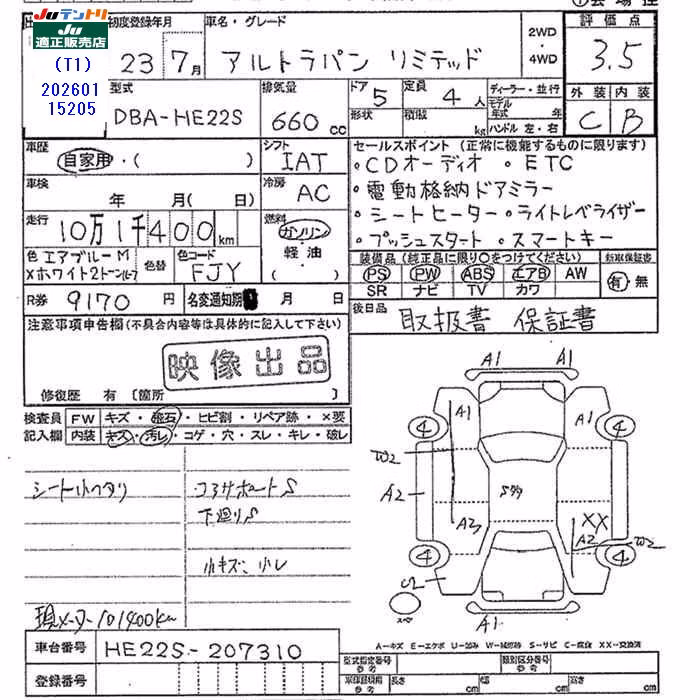 JU テントリ
JU
適正販売店
(T1)
202601
15205
初度登録年月
23 7月
車名・グレード
アルトラパン リミテッド
2WD
・
4WD
評価点
3.5
型式
DBA-HE22S
排気量
660 cc
ドア
5
定員
4人
形状
積載
kg
ディーラー・並行
モデル
年式 年
ハンドル 左・右
外装 内装
C B
車歴
自家用・( )
シフト
IAT
セールスポイント (正常に機能するものに限ります)
・CDオーディオ ・ETC
・電動格納ドアミラー
・シートヒーター ・ライトレベライザー
・プッシュスタート ・スマートキー
車検
年 月( 日)
冷房
AC
走行
10万1千400km
燃料
ガソリン
・
軽油
( )
色 エアブルーM
×ホワイト2トンルーフ
色替
色コード
FJY
装備品 (純正品に限り○をつけてください)
新車保証書
PS PW ABS エアB AW
SR ナビ TV カワ
有・無
R券 9170 円
名変通知期 月 日
後日品 取扱書 保証書
注意事項申告欄(不具合内容等は具体的に記入して下さい)
映像出品
修復歴 有 〔箇所 〕
検査員
記入欄
FW キズ・飛石・ヒビ割・リペア跡・×要
内装 キズ・汚レ・コゲ・穴・スレ・キレ・破レ
シート小ヘタリ
コアサポートS
下廻りS
小キズ・小レ
現メーター101400km
A1 A1
A1 A1
4 4
W2
A2
A2
A2
XX
W2
4 4
A1
スペア
A-キズ E-エクボ U-凹み W-補修跡 S-サビ C-腐食 XX-交換済
車台番号 HE22S-207310
登録番号
型式指定番号
参考
類別区分番号
参考
車体諸規用
参考
長さ cm 幅 cm 高さ cm